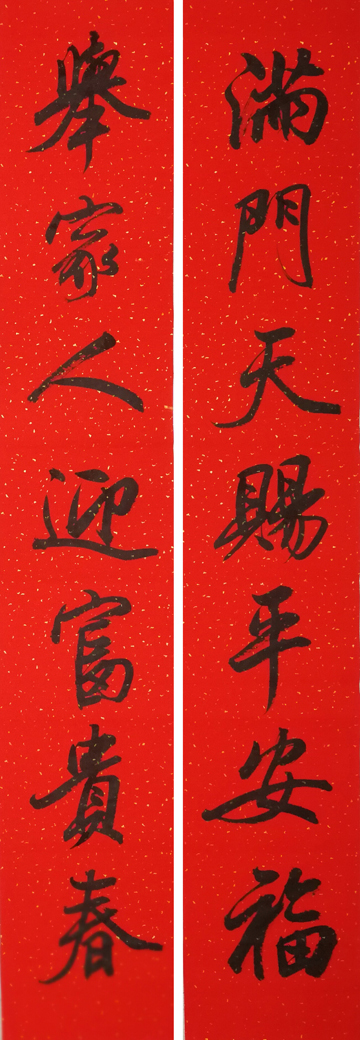 滿門天賜平安福
舉家人迎富貴春